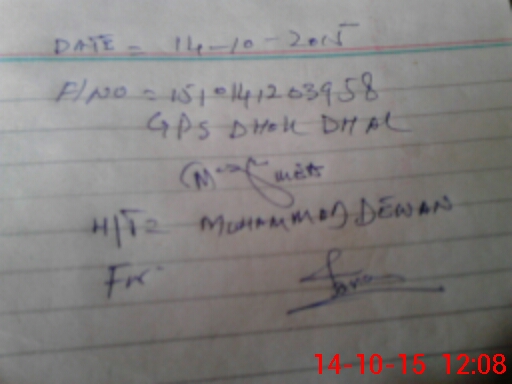 DATE = 14-10-2015
F/NO = 1510141203958
GPS DHOK DHAL
H/T = MUHAMMAD DEWAN
14-10-15 12:08